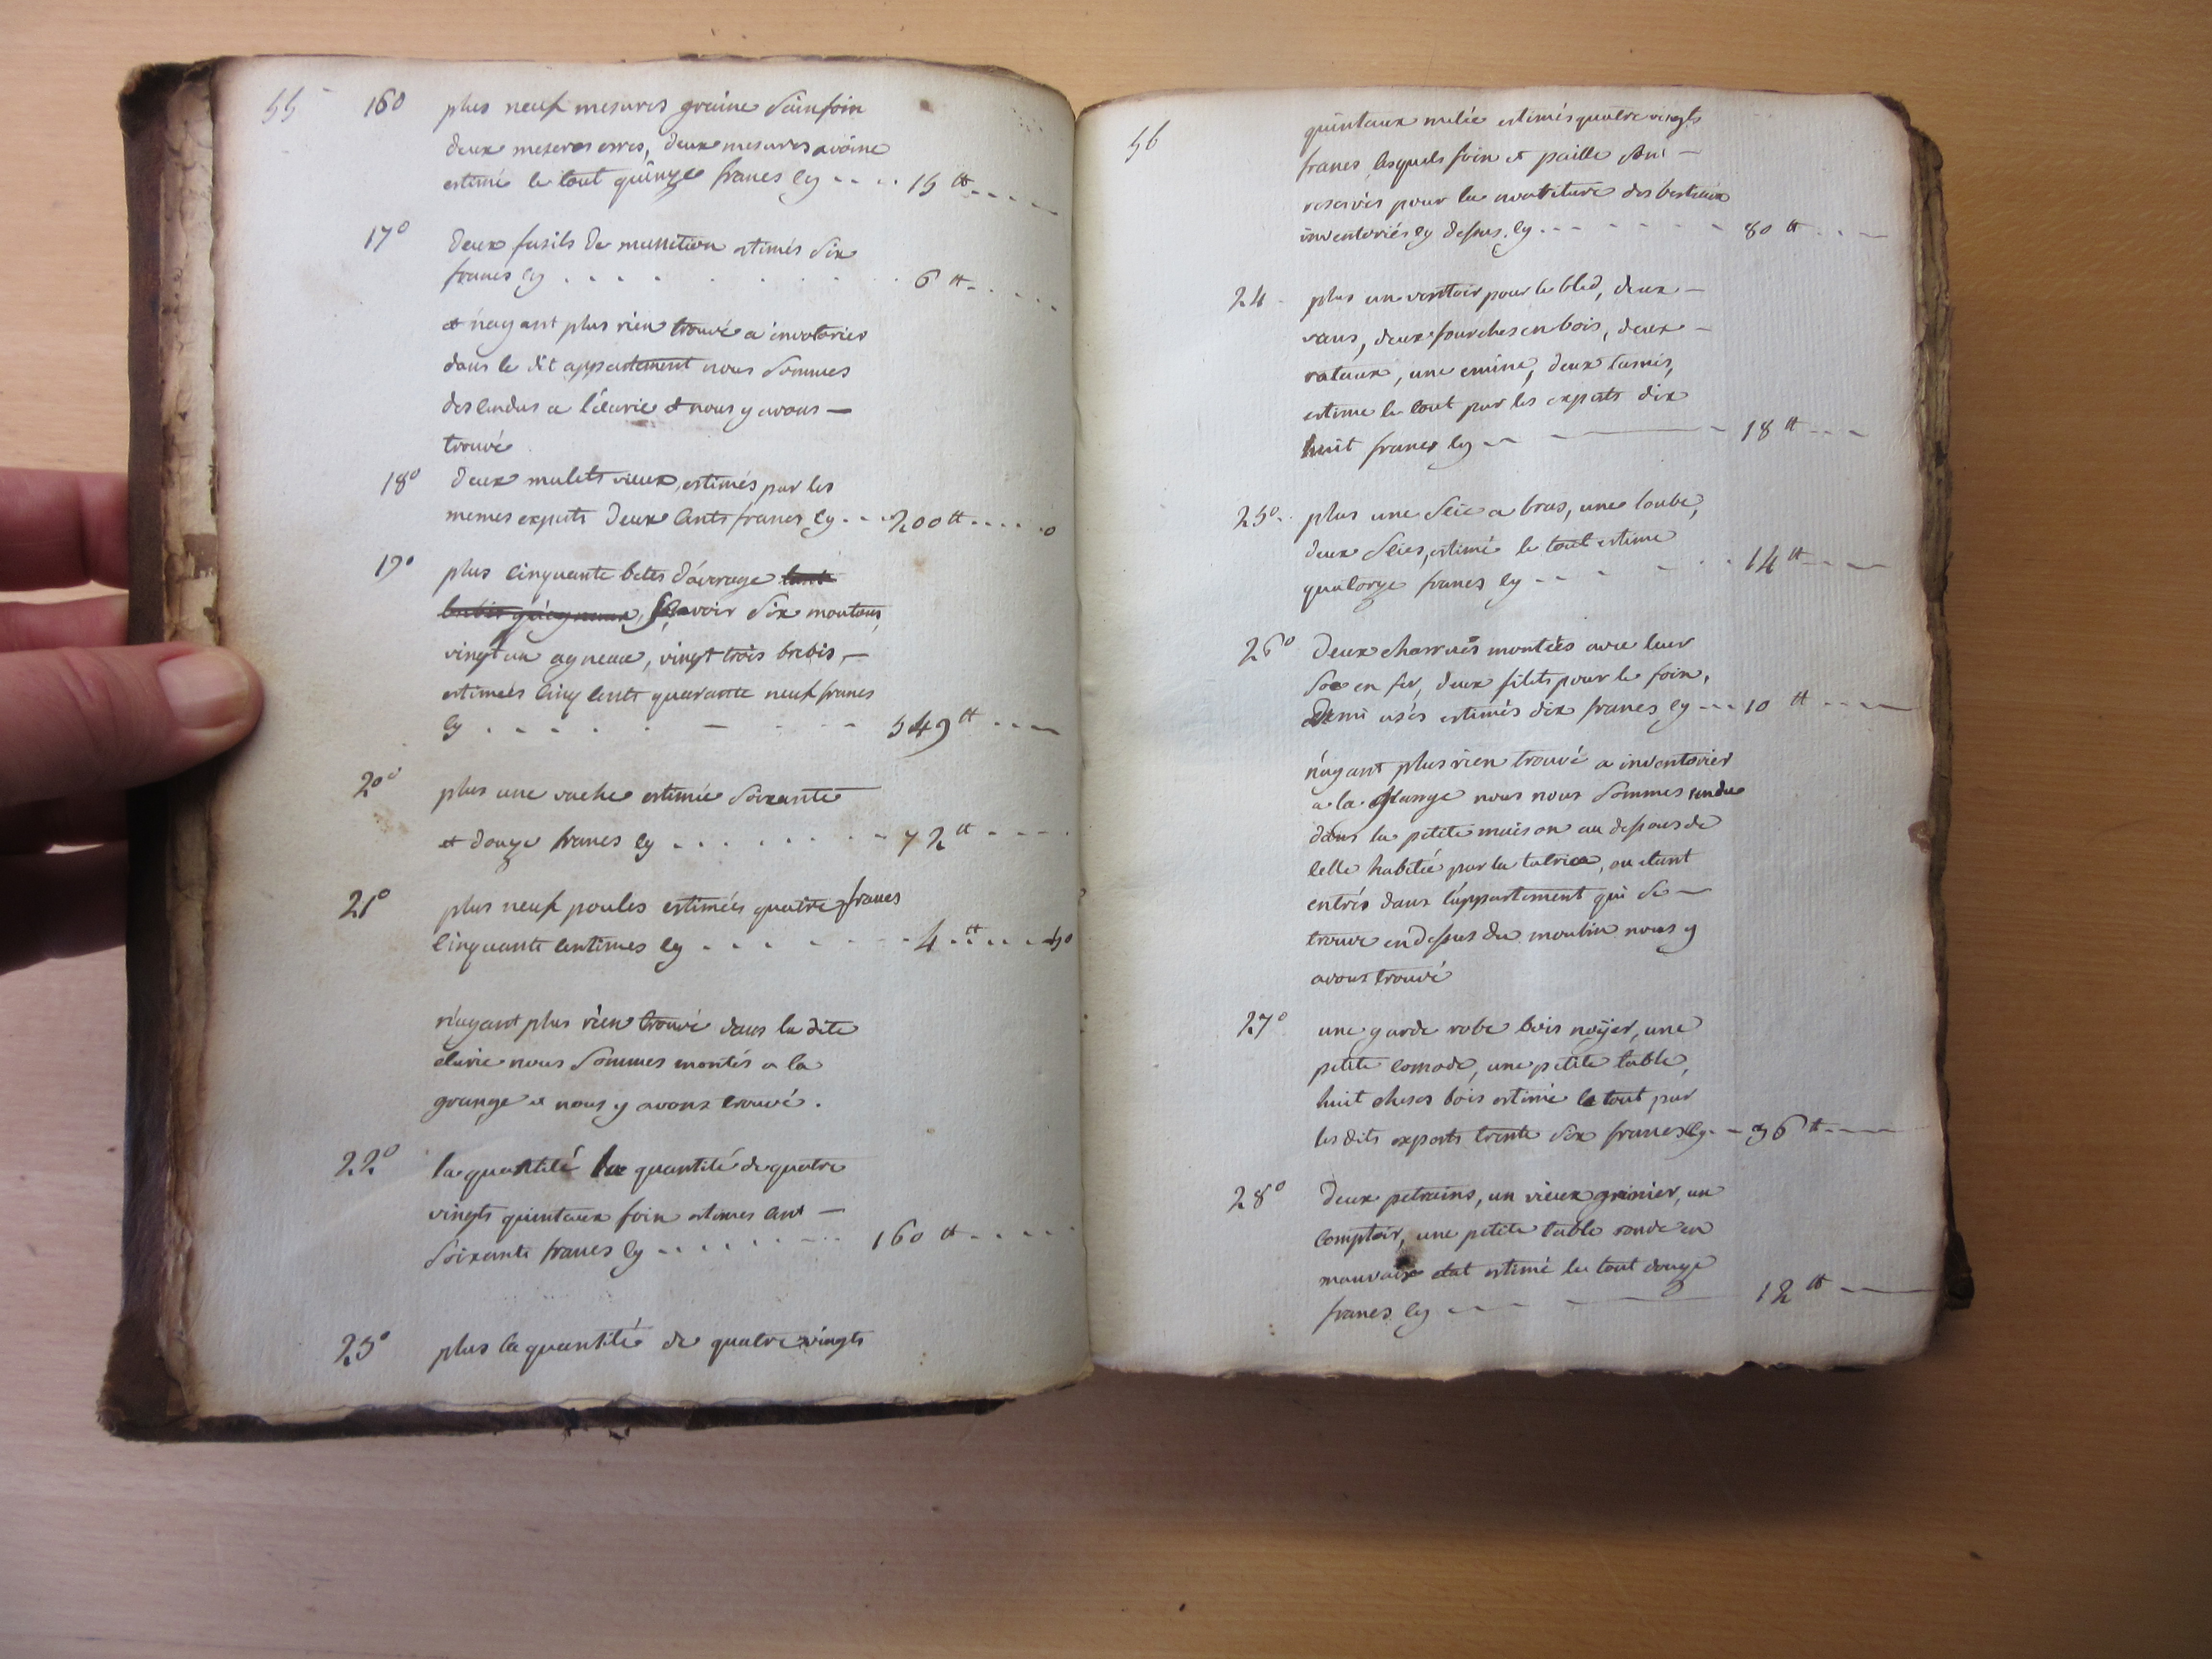 55
16° plus neuf mesures graine Sainfoin
deux mesures erres, deux mesures avoine
estimé le tout quinze francs cy .... 15 tt
17° deux fusils de munition estimés Six
francs cy . . . . 6 tt
et n'ayant plus rien trouvé a inventorier
dans le dit appartement nous Sommes
descendus a l'écurie et nous y avons —
trouvé
18° deux mulets vieux, estimés par les
memes experts deux Cents francs cy ... 200 tt ..... 0
19° plus cinquante betes d'average
Sçavoir Six moutons,
vingt un agneaux, vingt trois brebis, —
estimées Cinq Cents quarante neuf francs
cy . . . . . 549 tt
20° plus une vache estimée Soixante
et douze francs cy . . . . . 72 tt
21° plus neuf poules estimées quatre francs
cinquante centimes cy . . . . 4 tt .... 50
n'ayant plus rien trouvé dans la dite
ecurie nous Sommes montés a la
grange et nous y avons trouvé.
22° la quantité la quantité de quatre
vingts quintaux foin estimes cent —
Soixante francs cy . . . . . 160 tt
23° plus la quantité de quatre vingts
56
quintaux estimés quatre vingts
francs, lesquels foin et paille Sont —
reservés pour la nourriture des bestiaux
inventoriés cy dessus. cy . . . . 80 tt
24 plus un ventoir pour le bled, deux —
vans, deux fourches en bois, deux —
rateaux, une emine, deux tamis,
estimé le tout par les experts dix
huit francs cy — — 18 tt
25°. plus une Scie a bras, une loube,
deux Scies, estimé le tout estime
quatorze francs cy . . . . 14 tt
26° deux charrues montées avec leur
Soc en fer, deux filets pour le foin,
demi usés estimés dix francs cy ... 10 tt
n'ayant plus rien trouvé a inventorier
a la grange nous nous Sommes rendu
dans la petite maison au dessous de
celle habitée par la tutrice, ou etant
entrés dans l'appartement qui Se —
trouve en dessus du moulin nous y
avons trouvé
27° une garde robe bois noÿer, une
petite comode, une petite table,
huit cheses bois estimé le tout par
les dits experts trente Six francs cy. — 36 tt
28° deux petrins, un vieux grenier, un
Comptoir, une petite table ronde en
mauvaix etat estimé le tout douze
francs cy — — 12 tt